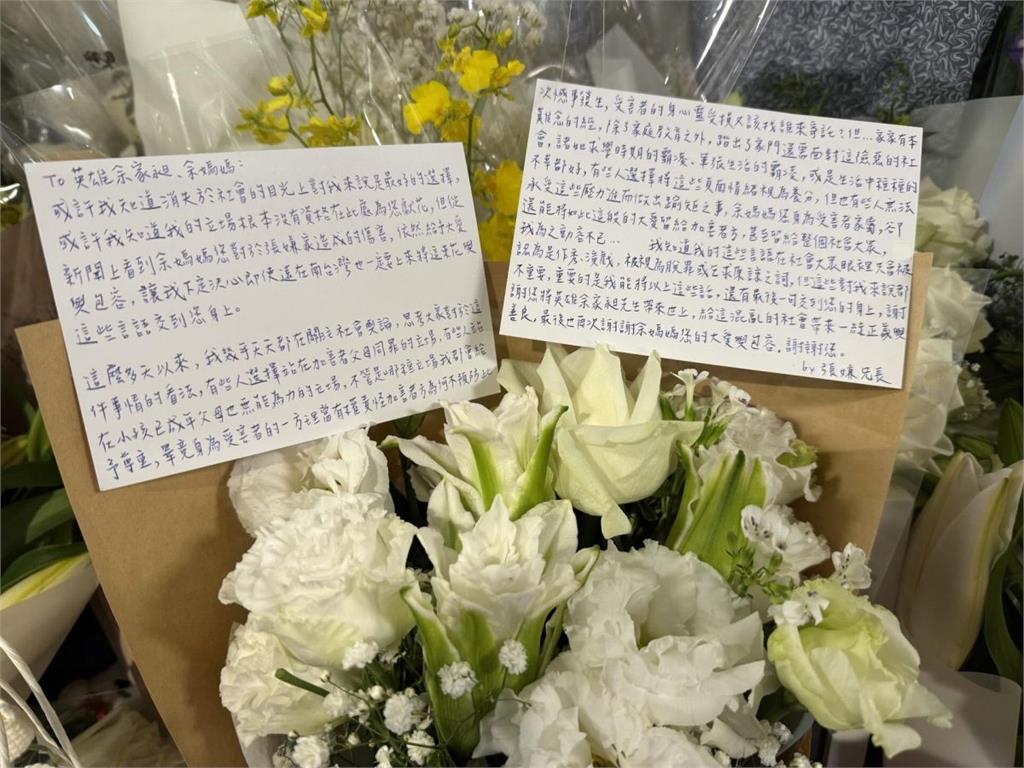 To 英雄余家昶、余媽媽:
或許我知道消失於社會的目光上對我來說是最好的選擇,
或許我知道我的立場根本沒有資格在此處為您獻花,但從
新聞上看到余媽媽您對於張嫌家造成的傷害,依然給予大愛
與包容,讓我下定決心即便遠在南台灣也一定要上來將這束花與
這些言語交到您身上。
這麼多天以來,我幾乎天天都在關注社會輿論,思考大眾對於這
件事情的看法,有些人選擇站在加害者父母同罪的立場,有些人站
在小孩已成年父母也無能為力的立場,不管是哪種立場我都會給
予尊重,畢竟身為受害者的一方理當有權責怪加害者方為何不積極上
次憾事發生,受害者的身心靈受損又該找誰來寄託?但...家家有本
難念的經,除了家庭教育之外,踏出了家門還需面對這險惡的社
會,諸如求學時期的霸凌、軍旅生活的霸凌,或是生活中種種的
不幸都好,有些人選擇將這些負面情緒視為養分,但也有些人無法
承受這些壓力進而做出踰矩之事,余媽媽您身為受害者家屬,卻
還能將如此這般的大愛留給加害者方,甚至留給整個社會大眾,
我為之動容不已... 我知道我的這些言語在社會大眾眼裡又會被
認為是作秀、演戲,被視為脫罪或乞求原諒之詞,但這些對我來說都
不重要,重要的是我能將以上這些話,還有最後一句交到您的身上,謝
謝您將英雄余家昶先生帶來世上,給這混亂的社會帶來一線正義與
善良,最後也再次謝謝余媽媽您的大愛與包容,謝謝您。
by 張嫌兄長